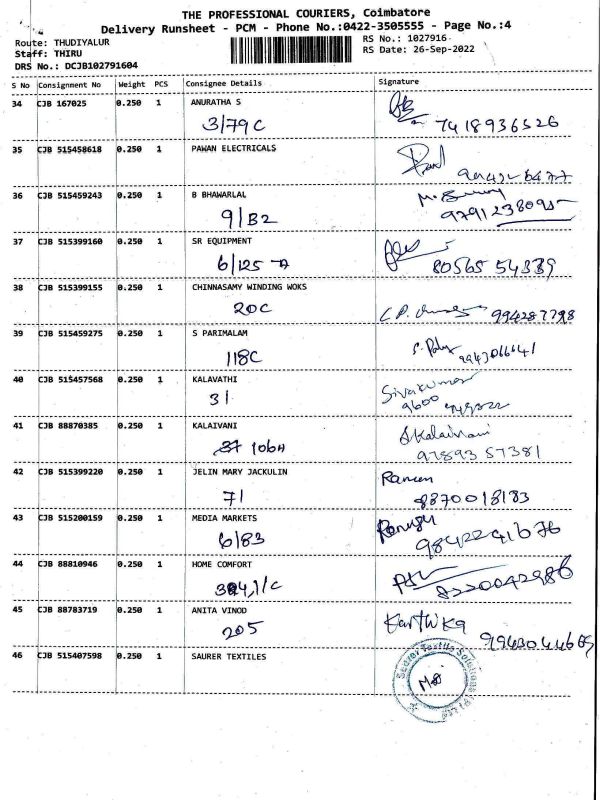 THE PROFESSIONAL COURIERS, Coimbatore
Delivery Runsheet - PCM - Phone No.:0422-3505555 - Page No.:4
Route: THUDIYALUR
RS No.: 1027916
Staff: THIRU
RS Date: 26-Sep-2022
DRS No.: DCJB102791604
S No Consignment No Weight PCS Consignee Details Signature
34 CJB 167025 0.250 1 ANURATHA S
3/79C 7418936526
35 CJB 515458618 0.250 1 PAWAN ELECTRICALS
36 CJB 515459243 0.250 1 B BHAWARLAL
9/B2
37 CJB 515399160 0.250 1 SR EQUIPMENT
6/125-A 80565 54339
38 CJB 515399155 0.250 1 CHINNASAMY WINDING WOKS
20C 994287798
39 CJB 515459275 0.250 1 S PARIMALAM
118C 9943066641
40 CJB 515457568 0.250 1 KALAVATHI
31 Sivakumar
9600
41 CJB 88870385 0.250 1 KALAIVANI
106A S Kalaivani
97893 57381
42 CJB 515399220 0.250 1 JELIN MARY JACKULIN
71 8870018183
43 CJB 515200159 0.250 1 MEDIA MARKETS
6/83 9842241676
44 CJB 88810946 0.250 1 HOME COMFORT
8220042986
45 CJB 88783719 0.250 1 ANITA VINOD
205 Karthika
9943044669
46 CJB 515407598 0.250 1 SAURER TEXTILES
Saurer Textile Solutions